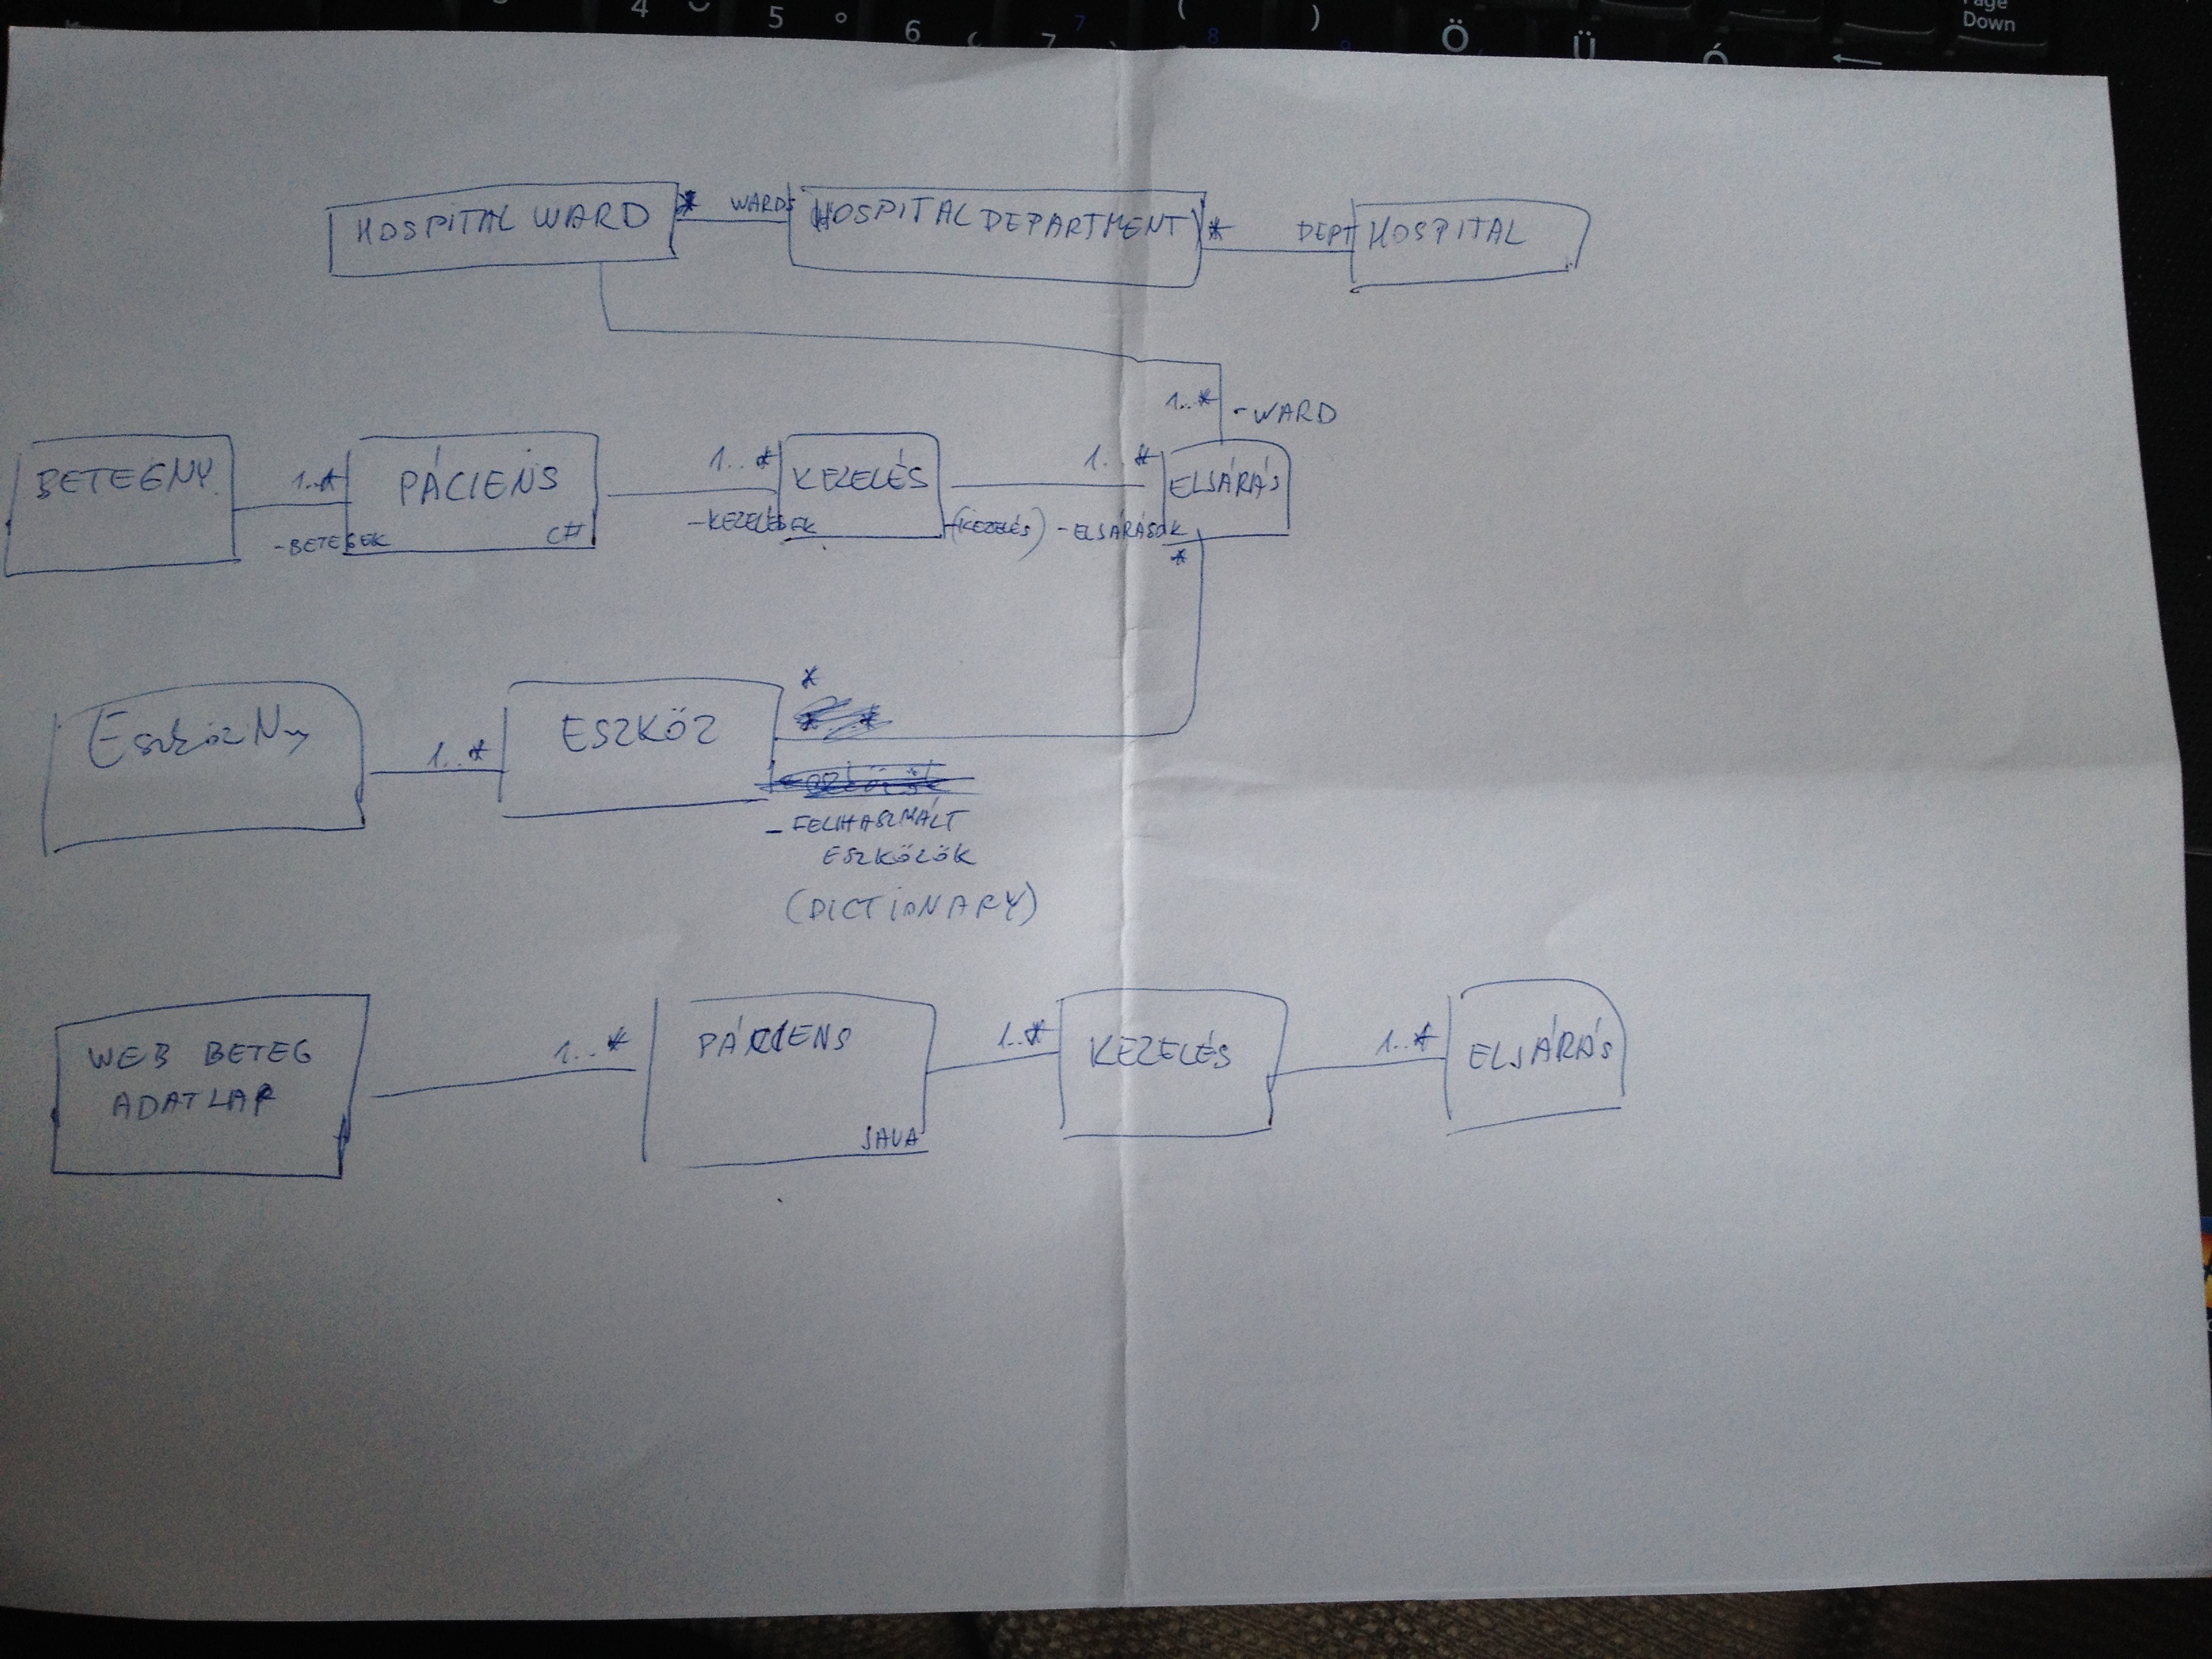 4
5
6
7
7
(
8
)
9
Ö
Ü
Ó
Page
Down
HOSPITAL WARD
*
WARDS
HOSPITAL DEPARTMENT
*
DEPT
HOSPITAL
1..*
-WARD
BETEGNY.
1..*
-BETEGEK
PÁCIENS
C#
1..*
-KEZELÉSEK
KEZELÉS
-(KEZELÉS)
1..*
-ELJÁRÁSOK
ELJÁRÁS
*
EszközNy
1..*
ESZKÖZ
*
-FELHASZNÁLT
ESZKÖZÖK
(DICTIONARY)
WEB BETEG
ADATLAP
1..*
PÁCIENS
JAVA
1..*
KEZELÉS
1..*
ELJÁRÁS